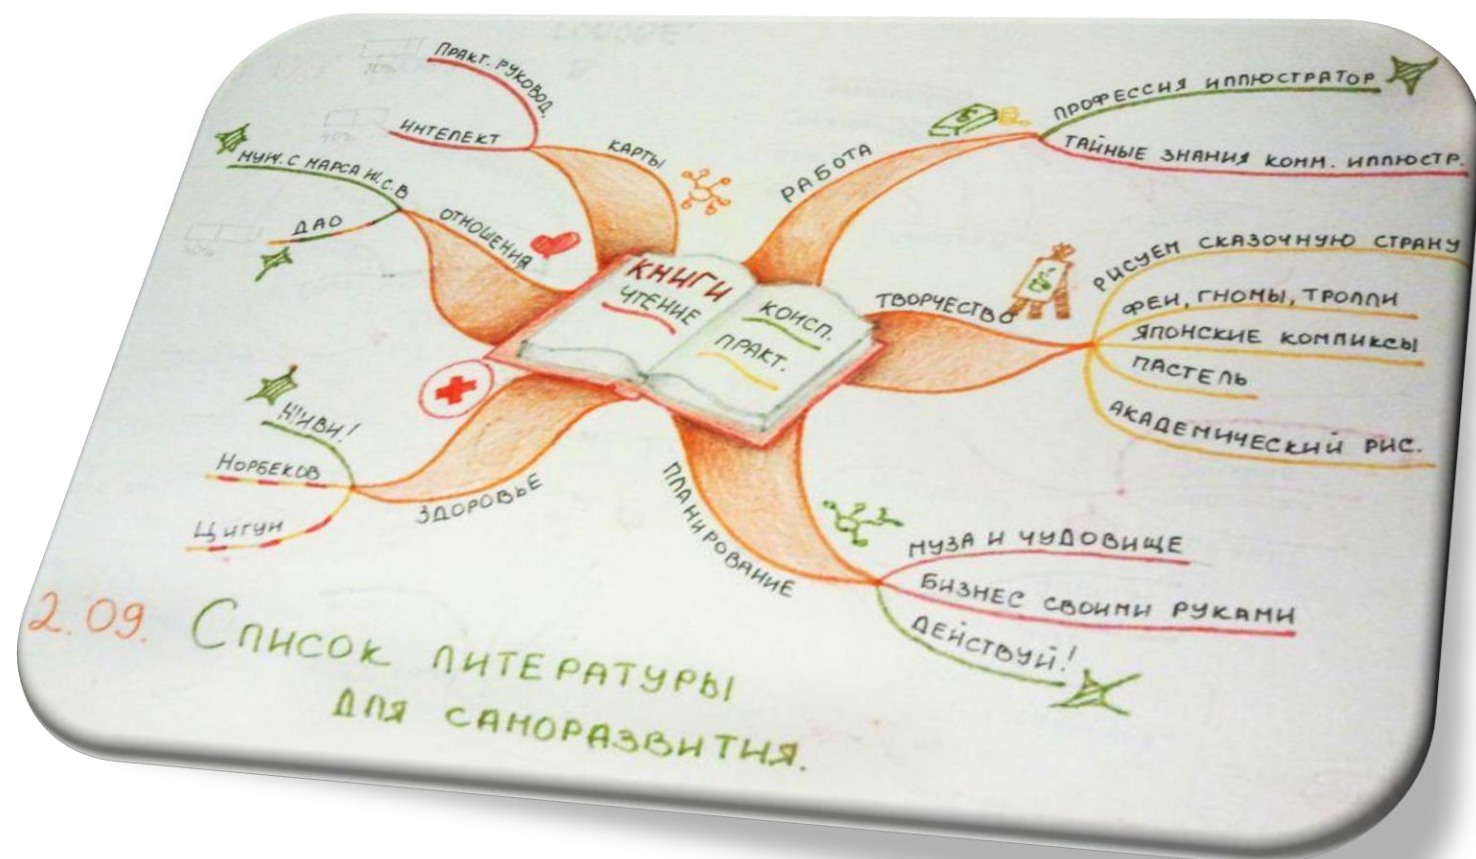 ПРАКТ. РУКОВОД.
ИНТЕЛЕКТ
КАРТЫ
МУЖ. С МАРСА Ж.С.В
ДАО
ОТНОШЕНИЯ
РАБОТА
ПРОФЕССИЯ ИЛЛЮСТРАТОР
ТАЙНЫЕ ЗНАНИЯ КОММ. ИЛЛЮСТР.
КНИГИ
ЧТЕНИЕ
КОНСП.
ПРАКТ.
ТВОРЧЕСТВО
РИСУЕМ СКАЗОЧНУЮ СТРАНУ
ФЕИ, ГНОМЫ, ТРОЛЛИ
ЯПОНСКИЕ КОМПИКСЫ
ПАСТЕЛЬ
АКАДЕМИЧЕСКИЙ РИС.
ЖИВИ!
НОРБЕКОВ
ЦИГУН
ЗДОРОВЬЕ
ПЛАНИРОВАНИЕ
МУЗА И ЧУДОВИЩЕ
БИЗНЕС СВОИМИ РУКАМИ
ДЕЙСТВУЙ!
2.09. СПИСОК ЛИТЕРАТУРЫ
ДЛЯ САМОРАЗВИТИЯ.